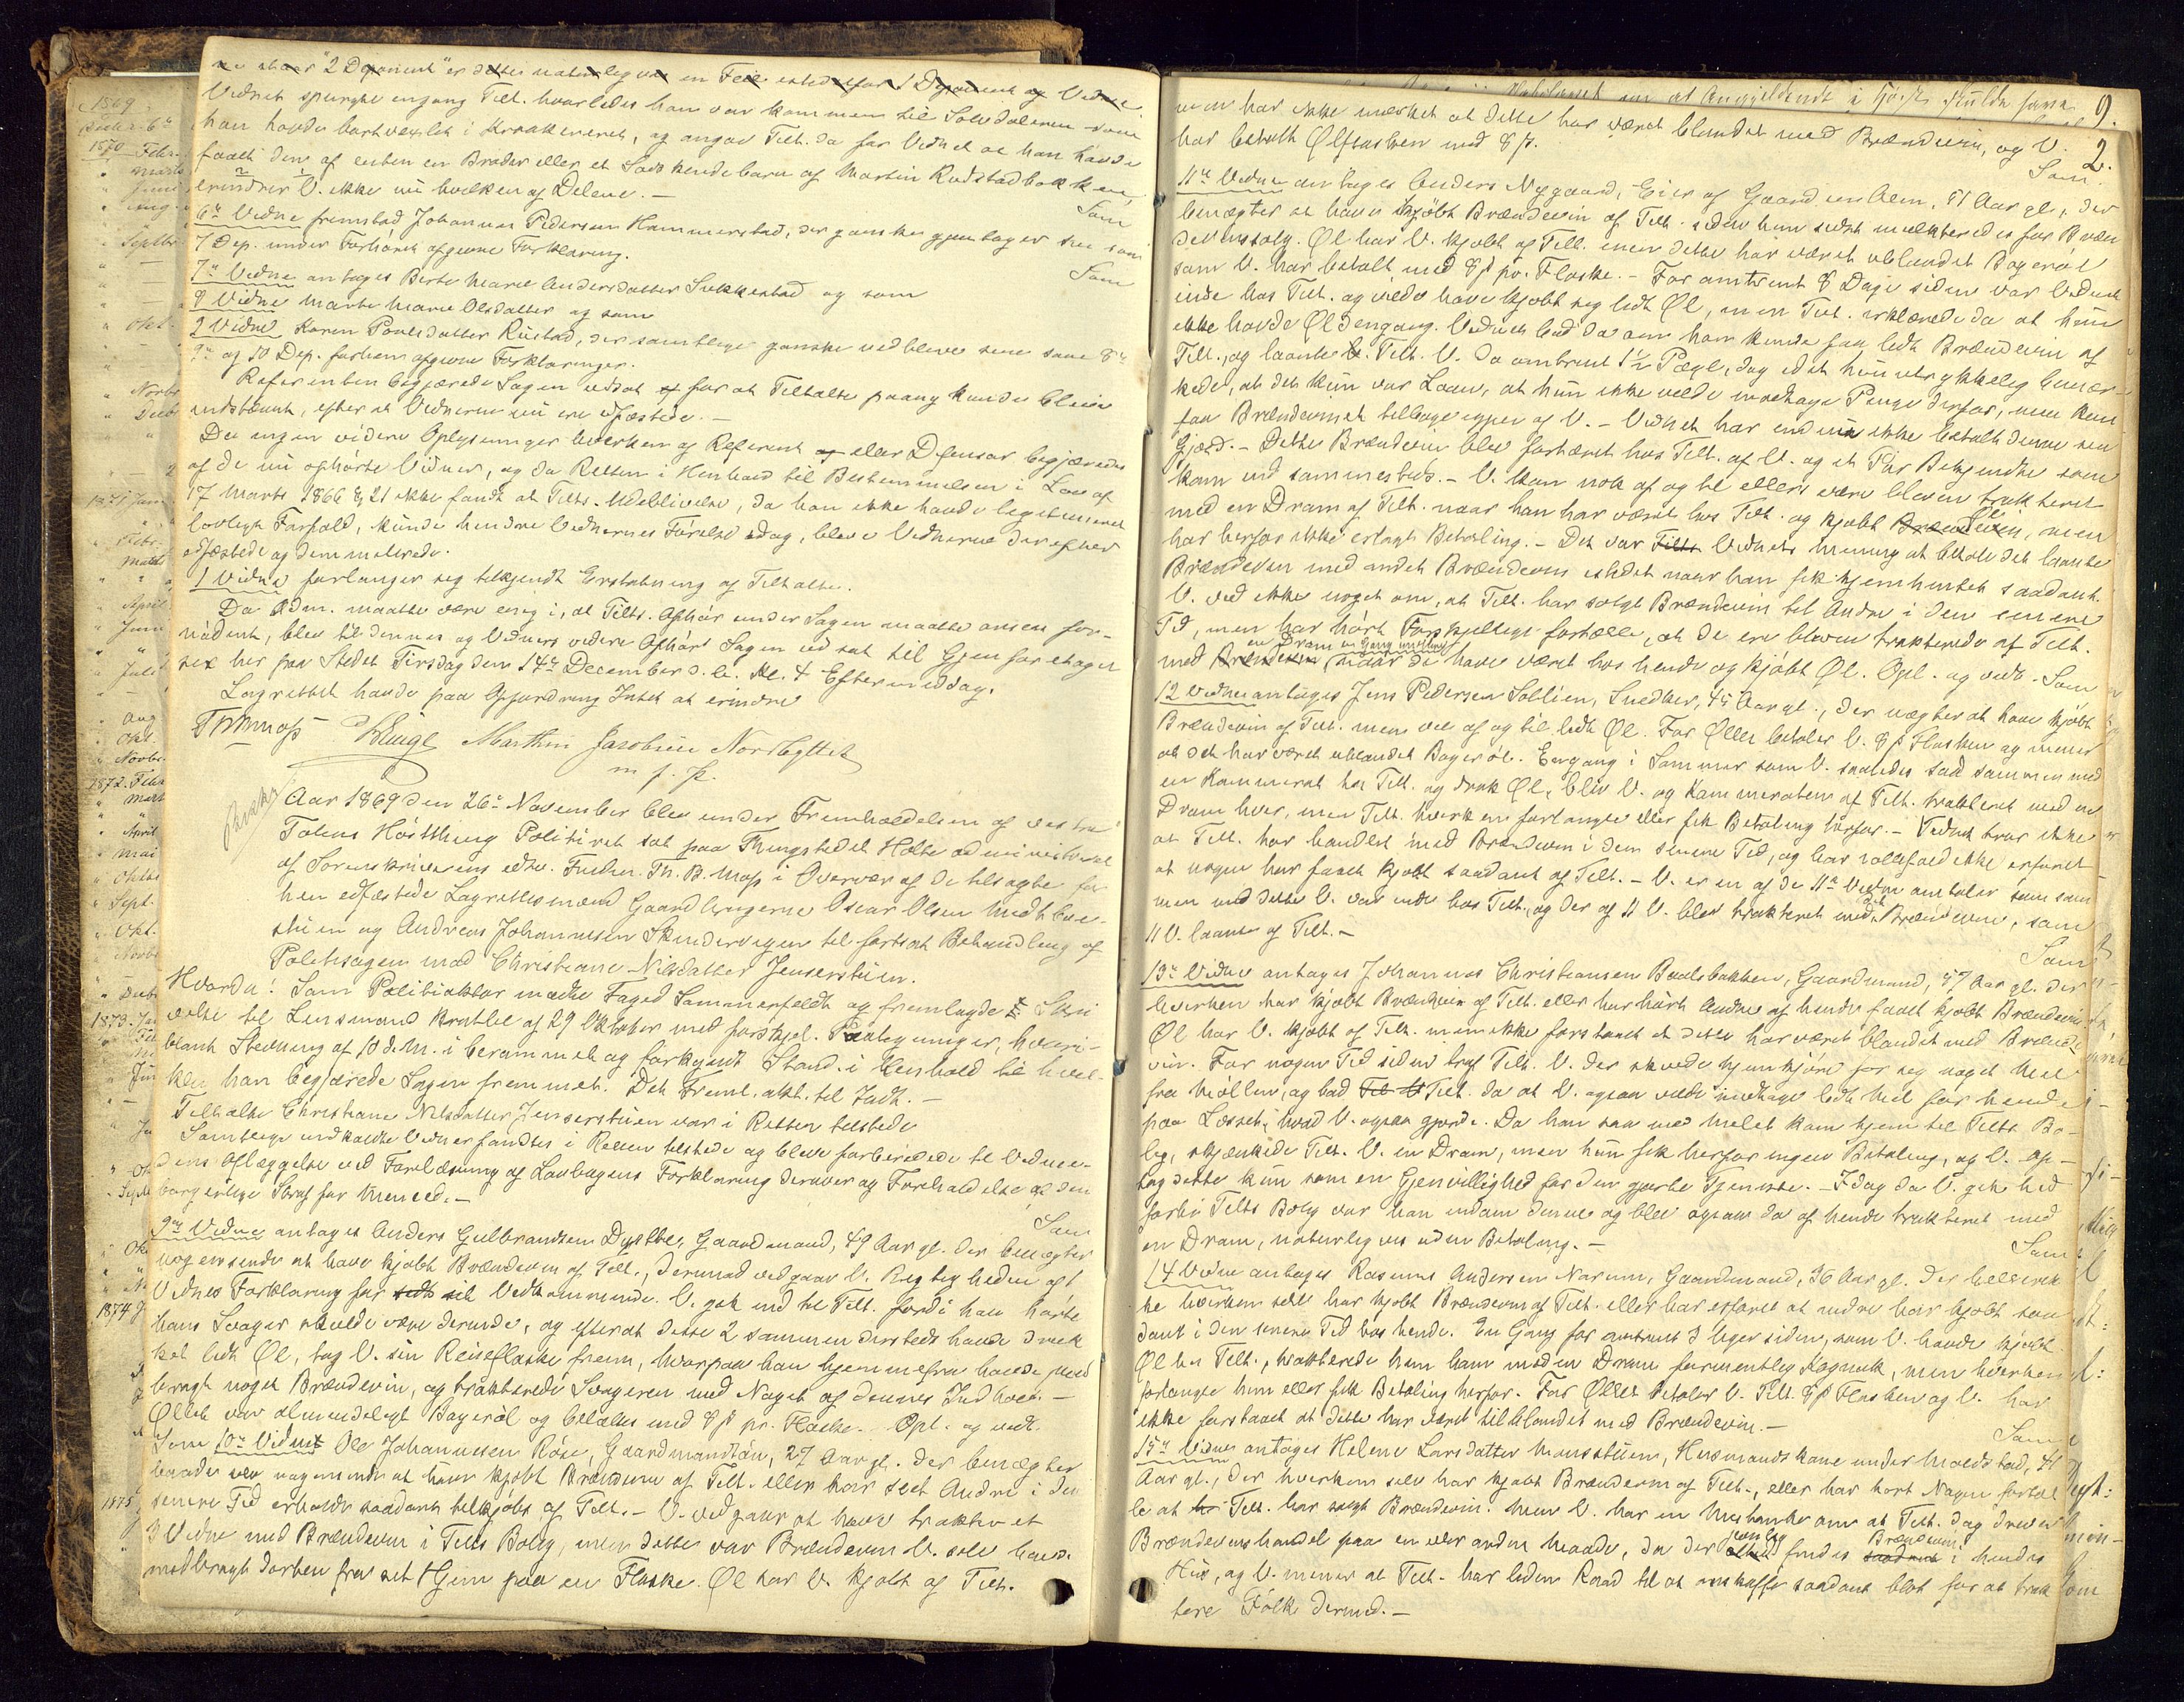 "2 Deponent" er dette naturligvis en Feil istedetfor 1 Deponent og Vidne
Vidnet spurgte engang Tilt. hvorledes han var kommen til Sølvdaleren som
han havde bortvexlet i Krambueret, og angav Tilt. da for Vidnet at han havde
faaet den af enten en Broder eller et Sødskendebarn af Martin Rudstadbakken
erindrer V. ikke nu hvilken af Delene. —
Som
6te Vidne fremstod Johannes Pedersen Hammerstad, der ganske gjentager sin som
7 Dep. under Forhøret afgivne Forklaring.
Som
7de Vidne antoges Berte Marie Andersdatter Sukkestad og som
8 Vidne Marte Marie Olsdatter og som
9 Vidne Karen Poulsdatter Rustad, der samtlige ganske vedbleve sine som 8de
9de og 10 Dep. forhen afgivne Forklaringer.
Referenten begjærede Sagen udsat for at Tiltalte paany kunde blive
indstævnt, efter at Vidnerne nu ere edfæstede. —
Da ingen videre Oplysninger hverken af Referent eller Defensor begjæredes
af de nu afhørte Vidner, og da Retten i Henhold til Bestemmelsen i Lov af
17 Marts 1866 § 21 ikke fandt at Tilts. Udeblivelse, da han ikke havde legitimeret
lovligt Forfald, kunde hindre Vidnernes Førelse idag, bleve Vidnerne derefter
edfæstede og demitterede.
1 Vidne forlanger sig tilkjendt Erstatning af Tiltalte.
Da Adm. maatte være enig i, at Tilts. Afhør under Sagen maatte ansees for-
nødent, blev til dennes og Vidners videre Afhør Sagen udsat til Gjenforetagel
se her paa Stedet Tirsdag den 14de December d. A. Kl. 4 Eftermiddag.
Lagrettet havde paa Opfordring Intet at erindre
Th B Moss Kluge Marthin Jacobsen Nordbyttet
m. f. P.
Aar 1869 den 26de November blev under Fremholdelsen af vestre
Totens Høstthing Politiret sat paa Thingstedet Holte administreret
af Sorenskriverens edsv. Fuldm. Th. B. Moss i Overvær af de tilsagte for
hen edfæstede Lagrettesmænd Gaardbrugerne Oscar Olsen Midtbøe-
stuen og Andreas Johannesen Skinderengen til fortsat Behandling af
Politisagen mod Christiane Nilsdatter Jenserstuen.
Hvorda: Som Politiaktor mødte Foged Sommerfeldt og fremlagde Skri
velse til Lensmand Krabbel af 29 Oktober med forskjel. Paategninger, hvori-
blandt Stevning af 10 d. M. i berammet og forkyndt Stand. i Henhold til hvil-
ken han begjærede Sagen fremmet. Det Freml. akt. til Indt. —
Tiltalte Christiane Nilsdatter Jenserstuen var i Retten tilstede
Samtlige indkaldte Vidner fandtes i Retten tilstede og bleve forberedede til Vidnes-
byrdens Aflæggelse ved Forelæsning af Lovbogens Forklaring derover og Foreholdelse af den
borgerlige Straf for Meneed. —
Som
9de Vidne antages Anders Gulbrandsen Dystbe, Gaardmand, 49 Aar gl. der benægter
nogensinde at have kjøbt Brændevin af Tilt., derimod vedgaar V. Rigtigheden af 1
Vidnes Forklaring for sit Vedkommende. V. gik ind til Tilt. fordi han hørte
hans Svoger skulde være derinde, og efterat disse 2 sammen dersteds havde druk
ket lidt Øl, tog V. sin Reiseflaske frem, hvorpaa han hjemmefra havde med
bragt noget Brændevin, og trakterede Svogeren med Noget af dennes Indhold. —
Øllet var almindeligt Bayerøl og betaltes med 8 ß pr. Flaske. Opl. og vedt.
Som 10de Vidne Ole Johannesen Røise, Gaardmandssøn, 27 Aar gl. der benægter
baade selv nogensinde at have kjøbt Brændevin af Tilt. eller har seet Andre i den
senere Tid erholde saadant tilkjøbs af Tilt. — V. vedgaar at have trakteret
3 Vidne med Brændevin i Tilts Bolig, men dette var Brændevin V. selv havde
medbragt dertil fra sit Hjem paa en Flaske. Øl har V. kjøbt af Tilt.
9.
2.
men har ikke mærket at dette har været blandet med Brændevin, og V.
har betalt Ølflasken med 8 ß.
Som
11te Vidne antages Anders Nygaard, Eier af Gaarden Alm, 51 Aar gl., der
benægter at have kjøbt Brændevin af Tilt. siden hun sidst mulkteredes for Bræn
devinssalg. Øl har V. kjøbt af Tilt. men dette har været ublandet Bayerøl
som V. har betalt med 8 ß pr. Flaske. — For omtrent 8 Dage siden var Vidnet
inde hos Tilt. og vilde have kjøbt sig lidt Øl, men Tilt. erklærede da at hun
ikke havde Øl dengang. Vidnet bad da om han kunde faa lidt Brændevin af
Tilt., og laante Tilt. V. da omtrent 1½ Pægl, dog idet hun udtrykkelig bemær-
kede, at det kun var Laan, at hun ikke vilde modtage Penge derfor, men kun
faa Brændevinet tilbage igjen af V. — Vidnet har endnu ikke betalt denne sin
Gjæld. — Dette Brændevin blev fortæret hos Tilt. af V. og et Par Bekjendte som
kom ind sammesteds. — V. kan nok af og til ellers være bleven trakteret
med en Dram af Tilt. naar han har været hos Tilt. og kjøbt Øl, men
har herfor ikke erlagt Betaling. — Det var Vidnets Mening at betale det laante
Brændevin med andet Brændevin istedet naar han fik hjemhentet saadant.
V. ved ikke noget om, at Tilt. har solgt Brændevin til Andre i den senere
Tid, men har hørt Forskjellige fortælle, at de ere blevne trakterede af Tilt.
med en Dram en Gang imellem naar de have været hos hende og kjøbt Øl. Opl. og vedt. Som
12 Vidne antages Jens Pedersen Sollien, Snedker, 45 Aar gl., der nægter at have kjøbt
Brændevin af Tilt. men vel af og til lidt Øl. For Øllet betaler V. 8 ß Flasken og mener
at det har været ublandet Bayerøl. Engang i Sommer som V. saaledes sad sammen med
en Kammerat hos Tilt. og drak Øl, blev V. og Kammeraten af Tilt. trakteret med en
Dram hver, men Tilt. hverken forlangte eller fik Betaling herfor. — Vidnet tror ikke
at Tilt. har handlet med Brændevin i den senere Tid, og har ialfald ikke erfaret
at nogen har faaet kjøbt saadant af Tilt. — V. er en af de 11te Vidne omtaler som som
men med dette V. var inde hos Tilt., og der af 11 V. blev trakteret med det Brændevin, som
11 V. laante af Tilt. —
Som
13de Vidne antages Johannes Christiansen Baalsbakken, Gaardmand, 57 Aar gl. der
hverken har kjøbt Brændevin af Tilt. eller har hørt Andre af hende faaet kjøbt Brændevin
Øl har V. kjøbt af Tilt. men ikke forstaaet at dette har været blandet med Brænde
vin. For nogen Tid siden traf Tilt. V. der skulde hjemkjøre for sig noget Mel
fra Møllen, og bad Tilt. da at V. ogsaa vilde medtage lidt Mel for hende
paa Læsset, hvad V. ogsaa gjorde. Da han saa med Melet kom hjem til Tilts Bo-
lig, skjænkede Tilt. V. en Dram, men hun fik herfor ingen Betaling, og V. op-
tog dette kun som en Gjenvillighed for den gjorte Tjeneste. — Idag da V. gik hid
forbi Tilts Bolig var han indom denne og blev ogsaa da af hende trakteret med
en Dram, naturligvis uden Betaling. —
Som
14 Vidne antages Rasmus Andersen Narum, Gaardmand, 36 Aar gl. der hellerik
ke hverken selv har kjøbt Brændevin af Tilt. eller har erfaret at andre har kjøbt saa
dant i den senere Tid hos hende. En Gang for omtrent 3 Uger siden, som V. havde kjøbt
Øl hos Tilt., trakterede hun ham med en Dram formentlig Kognak, men hverken
forlangte hun eller fik Betaling herfor. For Øllet betaler V. Tilt. 8 ß Flasken og V. har
ikke forstaaet at dette har været tilblandet med Brændevin. —
Som
15de Vidne antages Helene Larsdatter Monsstuen, Husmandskone under Molstad, 41
Aar gl., der hverken selv har kjøbt Brændevin af Tilt., eller har hørt Nogen fortæl
le at Tilt. har solgt Brændevin. Men V. har en Mistanke om at Tilt. dog driver
Brændevinshandel paa en eller anden Maade, da der jevnlig findes Brændevin i hendes
Hus, og V. mener at Tilt. har liden Raad til at anskaffe saadant blot for at trak
tere Folk dermed. —